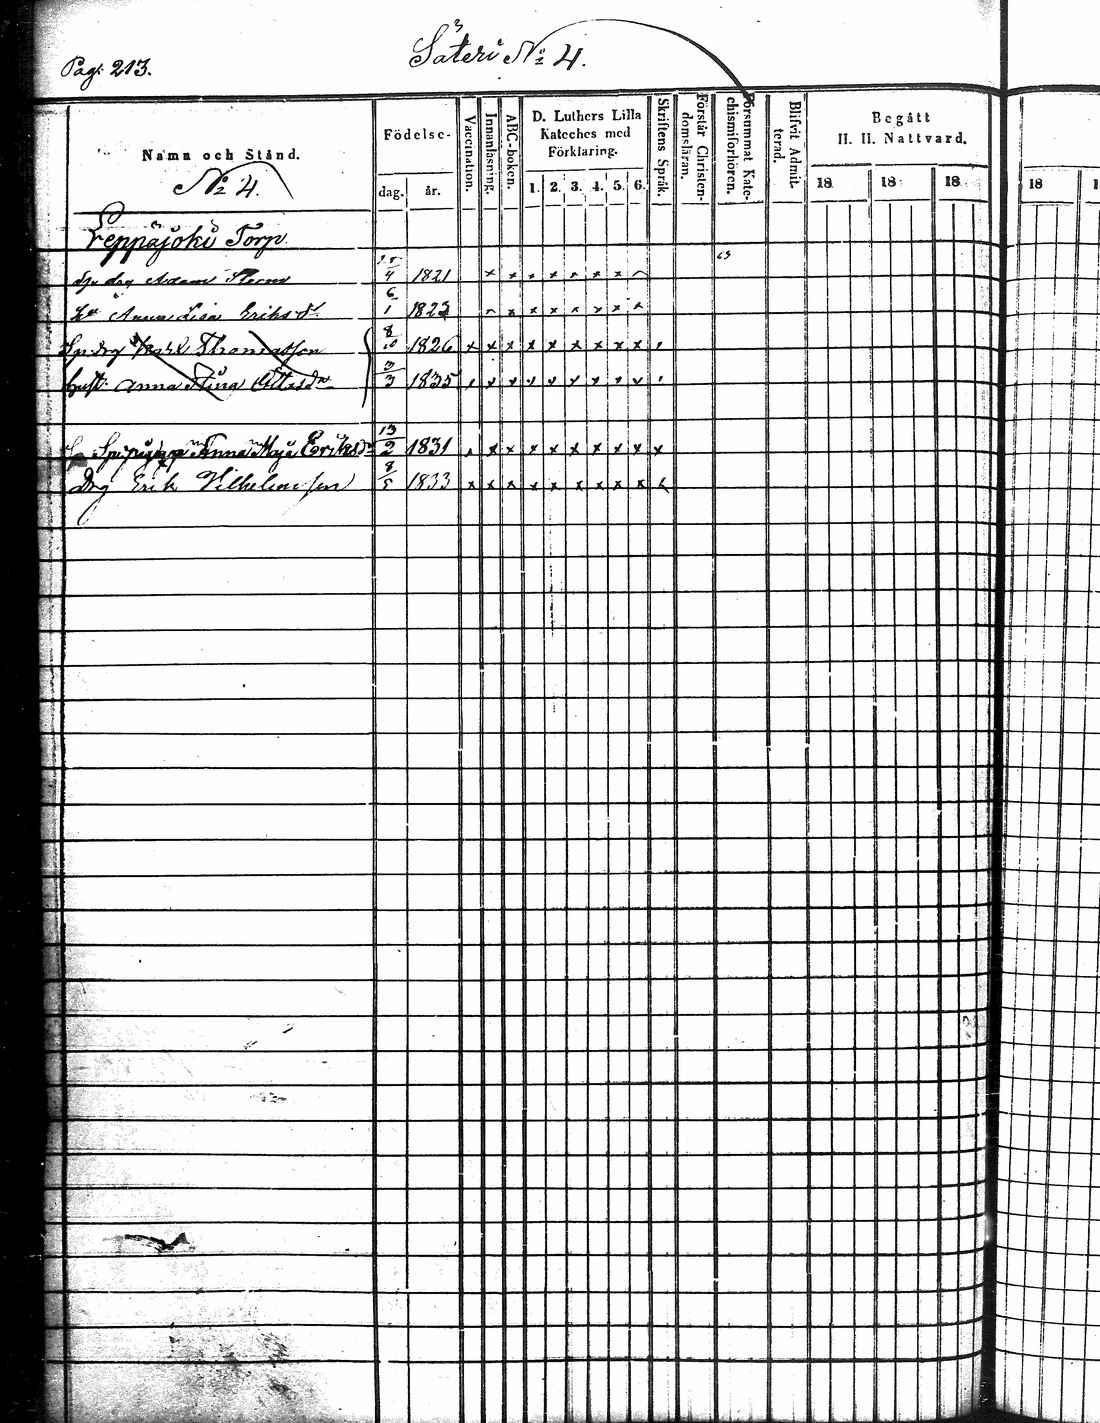 Pag: 213.
Säteri № 4.
Namn och Stånd.
№ 4.
Födelse-
dag. år.
Vaccination.
Innanläsning.
ABC-boken.
D. Luthers Lilla
Kateches med
Förklaring.
1. 2. 3. 4. 5. 6.
Skriftens Språk.
Förstår Christen-
domsläran.
Försummat Kate-
chismiförhören.
Blifvit Admit-
terad.
Begått
H. H. Nattvard.
18 18 18
18 1
Leppäjoki Torp.
drg Adam 4 1821
Anna Lisa Eriksdr 6/1 1823
Sp drg Karl Thomasson 8/10 1826
hust. Anna Stina 3/3 1835
Anna Maja Eriksdr 13/2 1831
Drg Erik Vilhelmsson 8/5 1833
63